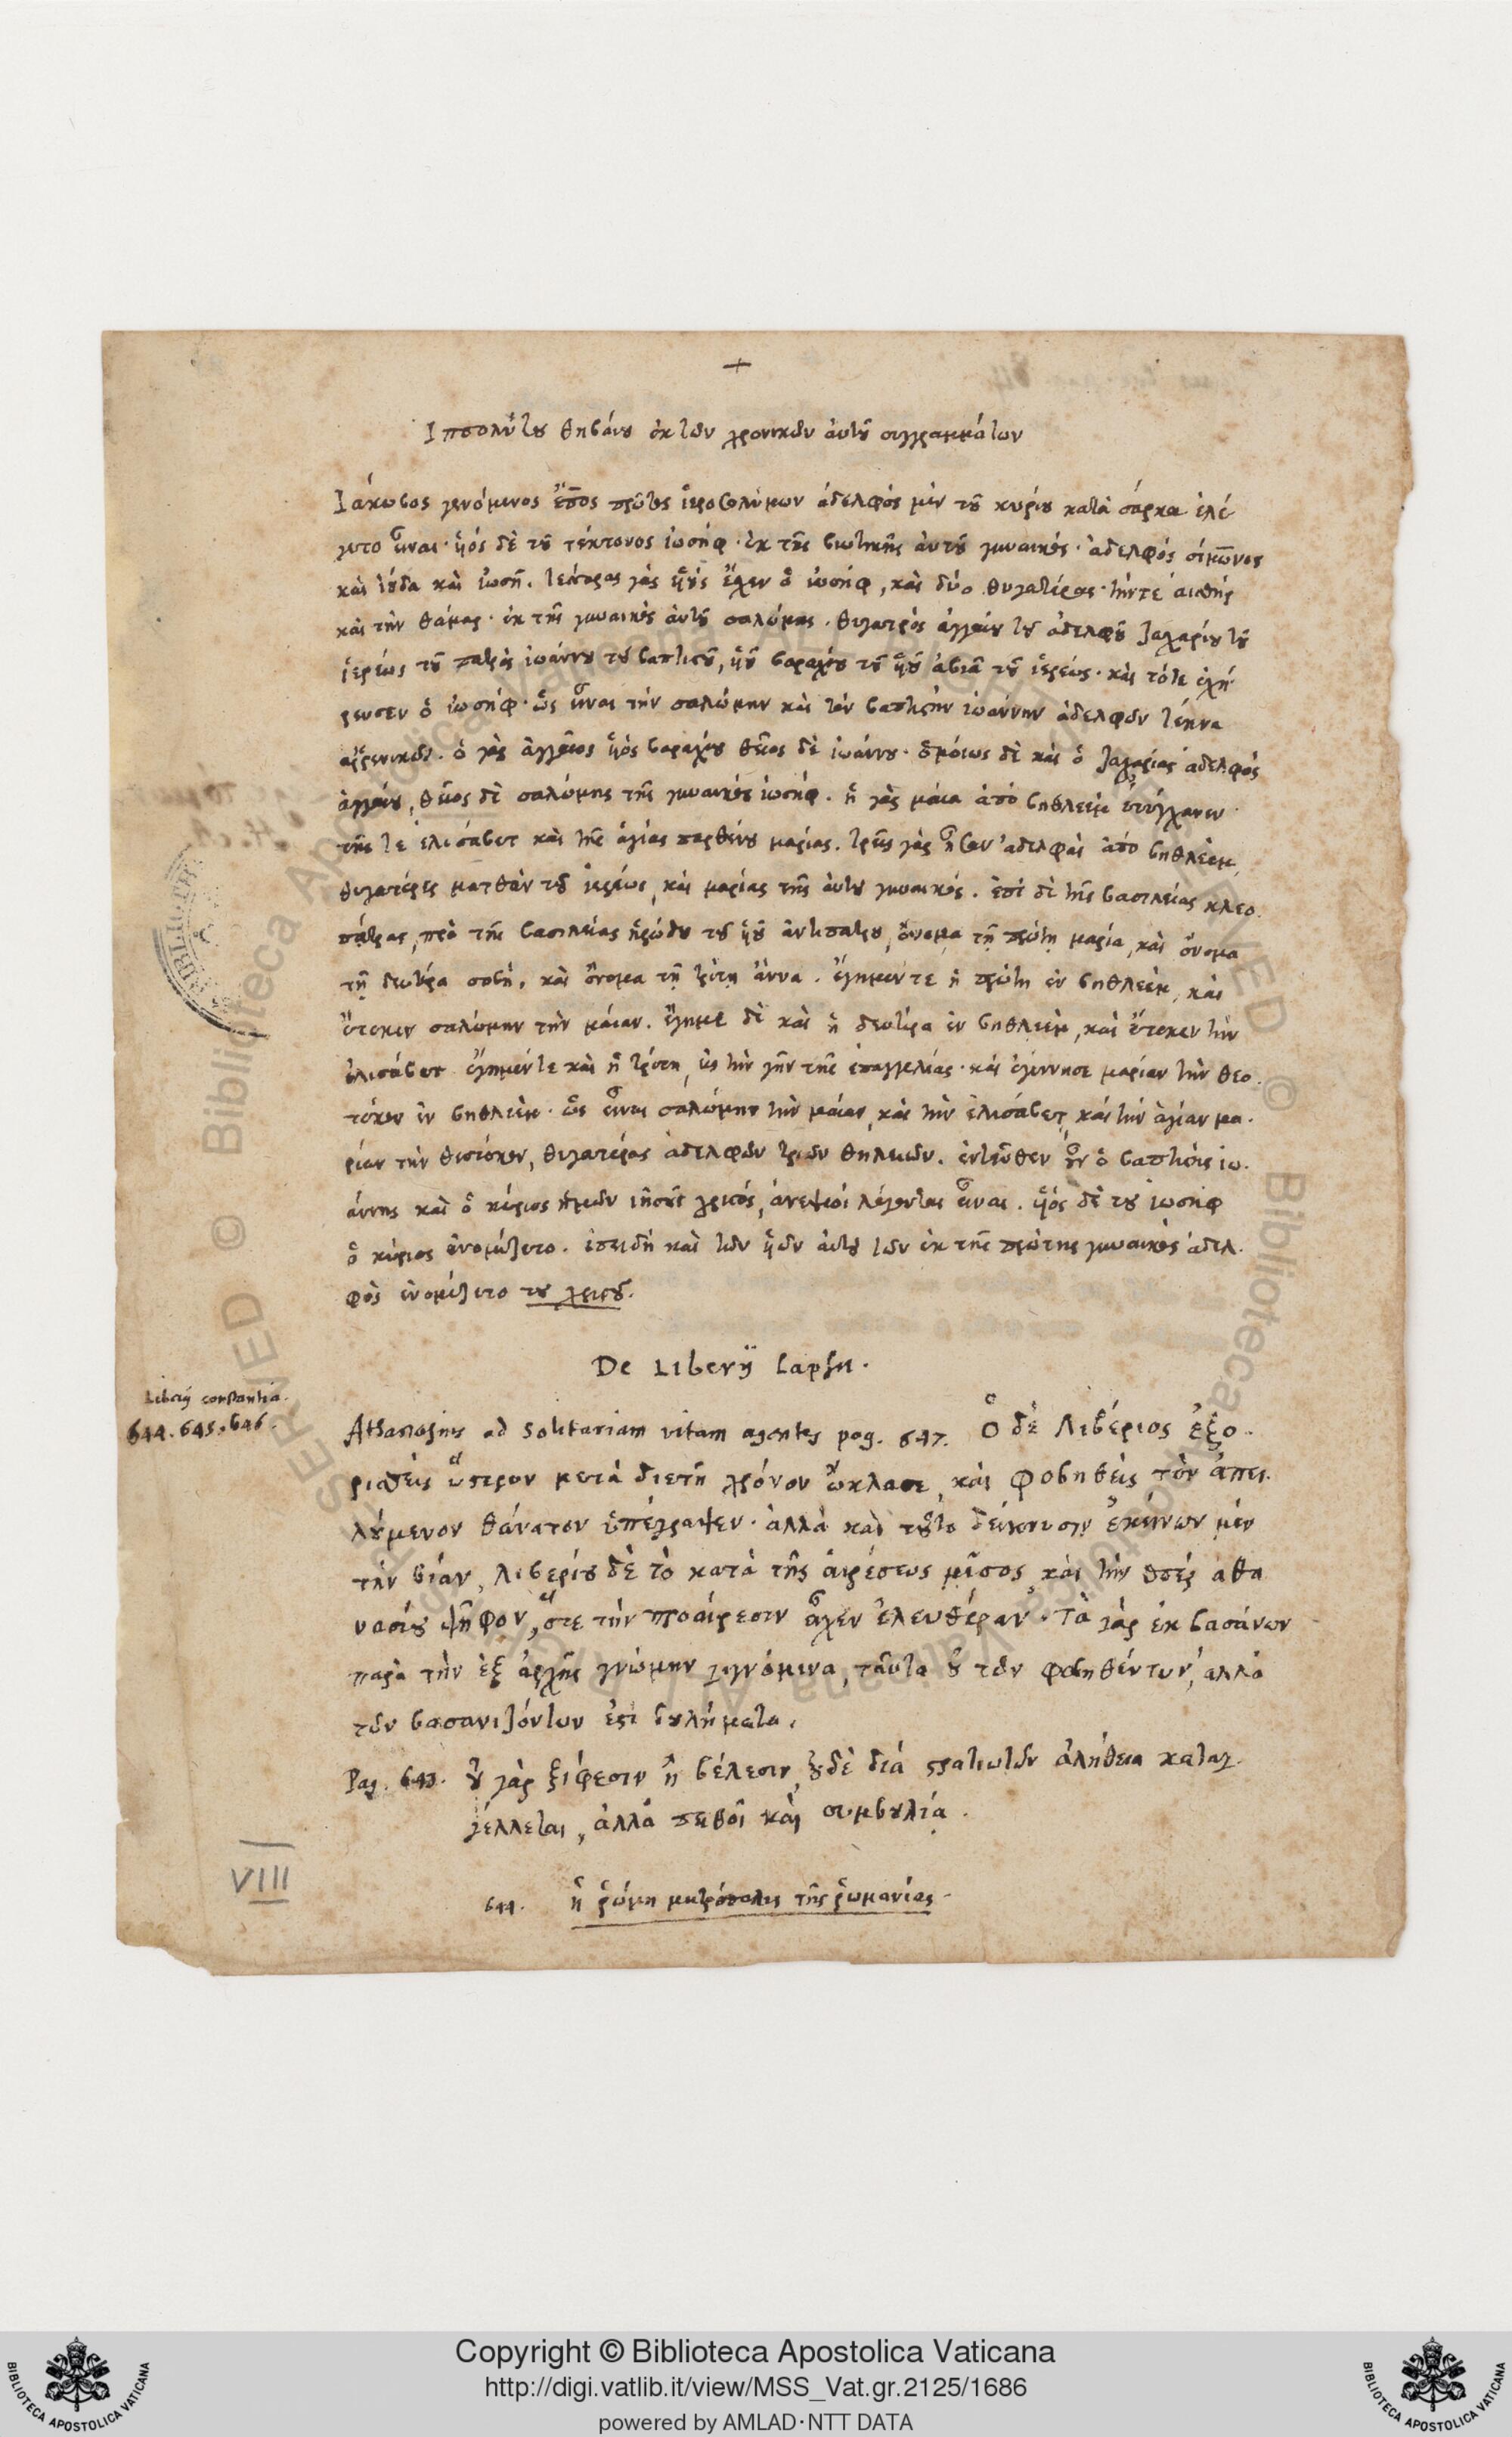 +
Ἱππολύτου θηβαίου ἐκ τῶν χρονικῶν αὐτοῦ συγγραμμάτων
Ἰάκωβος γενόμενος ἐπος πρῶτος ἱεροσολύμων ἀδελφός μὲν τοῦ κυρίου κατὰ σάρκα ἐλέ
γετο εἶναι· ὑιός δὲ τοῦ τέκτονος ἰωσήφ· ἐκ τῆς βιωτικῆς ἀυτοῦ γυναικός· ἀδελφός σίμωνος
καὶ ἰούδα καὶ ἰωσῆ. τέσσαρας γὰρ ὑιοὺς ἔχεν ὁ ἰωσήφ, καὶ δύο θυγατέρας· τήντε
καὶ τὴν θάμαρ· ἐκ τῆς γυναικὸς ἀυτοῦ σαλώμης· θυγατρὸς ἀγγαίου τοῦ ἀδελφοῦ ζαχαρίου τοῦ
ἱερέως τοῦ πατρὸς ἰωάννου τοῦ βαπτιστοῦ, ὑιοῦ βαραχίου τοῦ ὑιοῦ ἀβιᾶ τοῦ ἱερέως· καὶ τότε ἐχή
ρευσεν ὁ ἰωσήφ· ὡς εἶναι τὴν σαλώμην καὶ τὸν βαπτιστὴν ἰωάννην ἀδελφῶν τέκνα
ἀρρενικῶν. ὁ γὰρ ἀγγαῖος ὑιὸς βαραχίου θεῖος δὲ ἰωάννου· ὁμοίως δὲ καὶ ὁ ζαχαρίας ἀδελφός
ἀγγαίου, θεῖος δὲ σαλώμης τῆς γυναικὸς ἰωσήφ. ἡ γὰρ μαῖα ἀπὸ βηθλεὲμ ἐτύγχανεν
τῆς τε ἐλισάβετ καὶ τῆς ἁγίας παρθένου μαρίας. τρεῖς γὰρ ἦσαν ἀδελφαὶ ἀπὸ βηθλεὲμ,
θυγατέρες ματθὰν τοῦ ἱερέως, καὶ μαρίας τῆς ἀυτοῦ γυναικός. ἐπὶ δὲ τῆς βασιλείας κλεο.
πάτρας, πρὸ τῆς βασιλείας ἡρώδου τοῦ ὑιοῦ ἀντιπάτρου, ὄνομα τῇ πρώτῃ μαρία, καὶ ὄνομα
τῇ δευτέρᾳ σοβή, καὶ ὄνομα τῇ τρίτῃ ἄννα. ἔγημεν τε ἡ πρώτη ἐν βηθλεὲμ, καὶ
ἔτεκεν σαλώμην τὴν μαῖαν. ἔγημε δὲ καὶ ἡ δευτέρα ἐν βηθλεὲμ, καὶ ἔτεκεν τὴν
ἐλισάβετ ἔγημέν τε καὶ ἡ τρίτη, εἰς τὴν γῆν τῆς ἐπαγγελίας· καὶ ἐγέννησε μαρίαν τὴν θεο.
τόκον ἐν βηθλεὲμ· ὡς εἶναι σαλώμην τὴν μαῖαν, καὶ τὴν ἐλισάβετ, καὶ τὴν ἁγίαν μα.
ρίαν τὴν θεοτόκον, θυγατέρας ἀδελφῶν τριῶν θηλειῶν. ἐντεῦθεν οὖν ὁ βαπτιστὴς ἰω.
άννης καὶ ὁ κύριος ἡμῶν ἰησοῦς χριστός, ἀνεψιοὶ λέγονται εἶναι. ὑιός δὲ τοῦ ἰωσήφ
ὁ κύριος ἐνομίζετο. ἐπειδὴ καὶ τῶν ὑιῶν ἀυτοῦ τῶν ἐκ τῆς πρώτης γυναικὸς ἀδελ.
φὸς ἐνομίζετο τοῦ χριστοῦ.
De Liberij Lapsu.
Liberij constantia.
644. 645. 646.
Athanasius ad solitariam vitam agentes pag. 647. Ὁ δὲ Λιβέριος ἐξο.
ρισθεὶς ὕστερον μετὰ διετῆ χρόνον ὤκλασε, καὶ φοβηθεὶς τὸν ἀπει.
λούμενον θάνατον ὑπέγραψεν· ἀλλὰ καὶ τοῦτο δείκνυσιν ἐκείνων μὲν
τὴν βίαν, λιβερίου δὲ τὸ κατὰ τῆς ἁιρέσεως μῖσος, καὶ τὴν ὑπὲρ ἀθα
νασίου ψῆφον, ὅτε τὴν προαίρεσιν εἶχεν ἐλευθέραν. Τὰ γὰρ ἐκ βασάνων
παρὰ τὴν ἐξ ἀρχῆς γνώμην γιγνόμενα, ταῦτα οὐ τῶν φοβηθέντων, ἀλλὰ
τῶν βασανιζόντων ἐστὶ βουλήματα.
Pag. οὐ γὰρ ξίφεσιν ἢ βέλεσιν, οὐδὲ διὰ στρατιωτῶν ἀλήθεια καταγ.
γέλλεται, ἀλλὰ πειθοῖ καὶ συμβουλίᾳ.
VIII
644. ἡ ῥώμη μητρόπολις τῆς ῥωμανίας.
Copyright © Biblioteca Apostolica Vaticana
http://digi.vatlib.it/view/MSS_Vat.gr.2125/1686
powered by AMLAD·NTT DATA
BIBLIOTECA APOSTOLICA VATICANA
BIBLIOTECA APOSTOLICA VATICANA